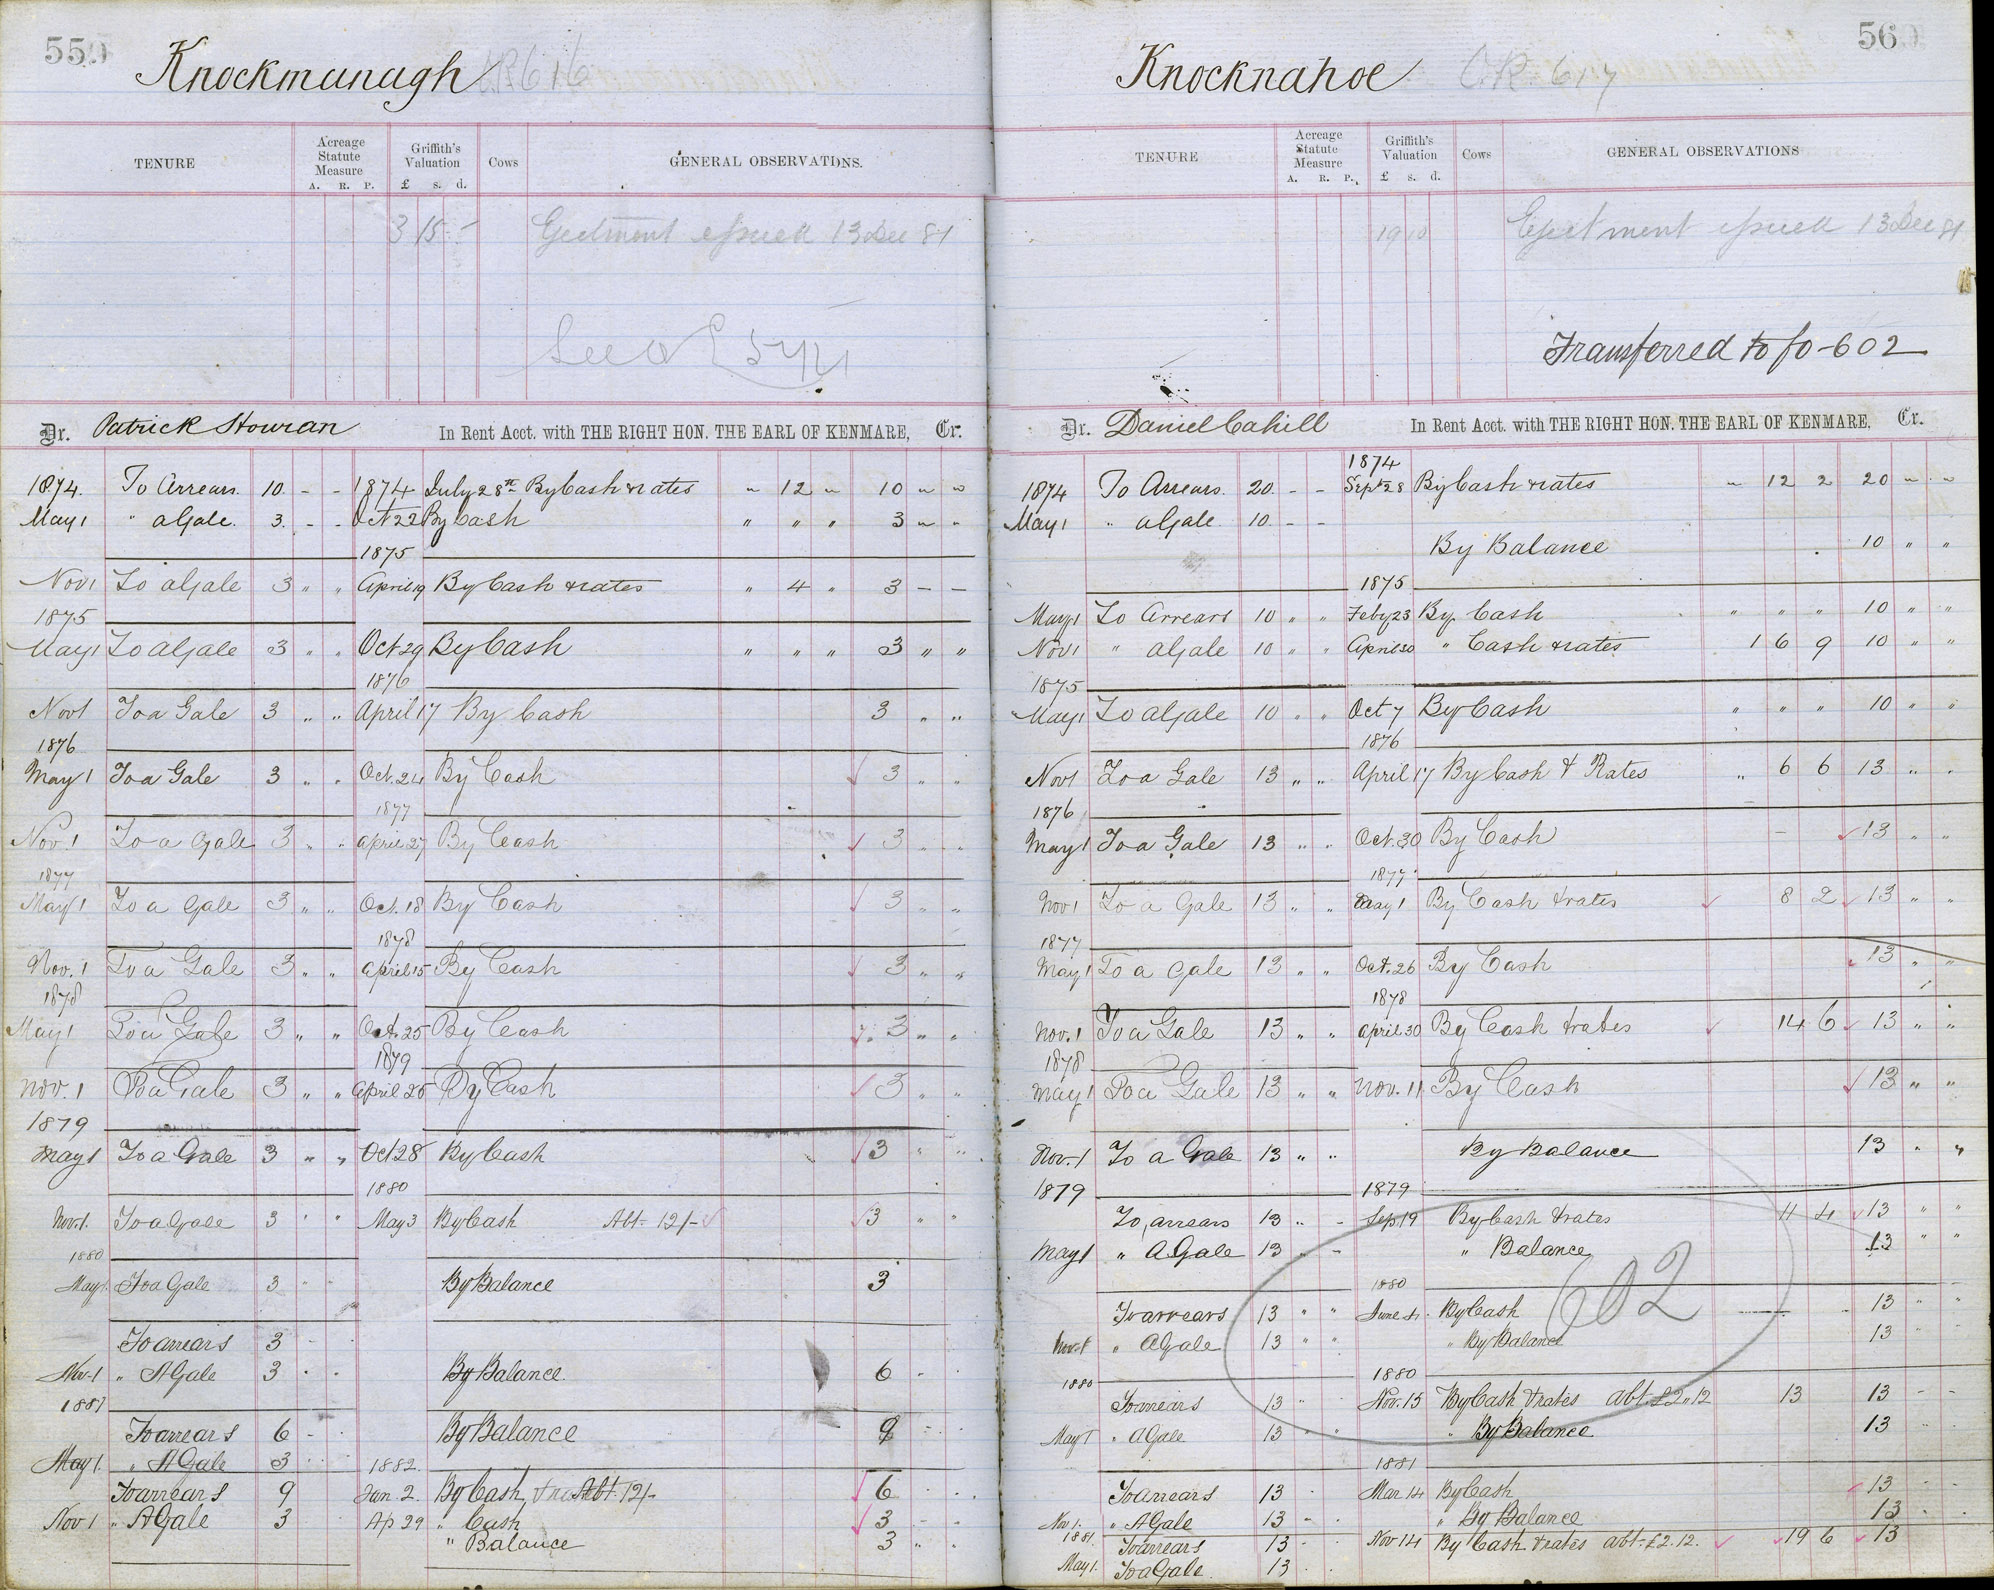 55
Knockmanagh
OR 616
TENURE
Acreage Statute Measure
A. R. P.
Griffith's Valuation
£ s. d.
Cows
GENERAL OBSERVATIONS.
3 15 -
Ejectment issued 13 Dec 81
Dr. Patrick Howran In Rent Acct. with THE RIGHT HON. THE EARL OF KENMARE, Cr.
1874. To Arrears. 10. - - 1874 July 28th By Cash & rates " 12 " 10 " "
May 1 " a Gale. 3. - - Oct 22 By Cash " " " 3 " "
1875
Nov 1 To a Gale 3 " " April 19 By Cash & rates " 4 " 3 - -
1875
May 1 To a Gale 3 " " Oct 29 By Cash " " " 3 " "
1876
Nov 1 To a Gale 3 " " April 17 By Cash 3 " "
1876
May 1 To a Gale 3 " " Oct. 24 By Cash 3 " "
1877
Nov. 1 To a Gale 3 " " April 27 By Cash 3 " "
1877
May 1 To a Gale 3 " " Oct. 18 By Cash 3 " "
1878
Nov. 1 To a Gale 3 " " April 15 By Cash 3 " "
1878
May 1 To a Gale 3 " " Oct. 25 By Cash 3 " "
1879
Nov. 1 To a Gale 3 " " April 25 By Cash 3 " "
1879
May 1 To a Gale 3 " " Oct 28 By Cash 3 " "
1880
Nov. 1. To a Gale 3 " " May 3 By Cash Abt. 12/- 3 " "
1880
May 1. To a Gale 3 " " By Balance 3
To arrears 3
Nov. 1 " A Gale 3 " " By Balance. 6
1881
To arrears 6 By Balance 9
May 1. " A Gale 3
1882.
To arrears 9 Jan 2. By Cash Abt. 12/- 6
Nov 1 " A Gale 3 Ap 29 " Cash 3
" Balance 3 " "
56
Knocknahoe
O.R. 617
TENURE
Acreage Statute Measure
A. R. P.
Griffith's Valuation
£ s. d.
Cows
GENERAL OBSERVATIONS
19 10
Ejectment issued 13 Dec 81
Transferred to fo - 602
Dr. Daniel Cahill In Rent Acct. with THE RIGHT HON. THE EARL OF KENMARE, Cr.
1874
1874 To Arrears. 20 - - Sept 28 By Cash & rates " 12 2 20 " "
May 1 " a Gale 10 - -
By Balance 10 " "
1875
May 1 To Arrears 10 " " Feby 23 By Cash " " " 10 " "
Nov 1 " a Gale 10 " " April 30 " Cash & rates 1 6 9 10 " "
1875
May 1 To a Gale 10 " " Oct 7 By Cash " " " 10 " "
1876
Nov 1 To a Gale 13 " " April 17 By Cash & Rates " 6 6 13 " "
1876
May 1 To a Gale 13 " " Oct. 30 By Cash - 13 " "
1877
Nov 1 To a Gale 13 " " May 1 By Cash & rates 8 2 13 " "
1877
May 1 To a Gale 13 " " Oct. 26 By Cash 13 " "
1878
Nov. 1 To a Gale 13 " " April 30 By Cash & rates 14 6 13 " "
1878
May 1 To a Gale 13 " " Nov. 11 By Cash 13 " "
Nov. 1 To a Gale 13 " " By Balance 13 " "
1879 1879
To arrears 13 " - Sep 19 By Cash & rates 11 4 13 " "
May 1 " A Gale 13 " - " Balance 13 " "
1880
602
To arrears 13 " " June 4. By Cash 13 " "
Nov. 1 " A Gale 13 " " " By Balance 13 "
1880 1880
To arrears 13 " Nov. 15 By Cash & rates abt. £2"12 13 13 - -
May 1 " A Gale 13 " " " By Balance 13
1881
To arrears 13 Mar 14 By Cash 13
Nov 1. " A Gale 13 - " By Balance 13
1881. To arrears 13 - Nov 14 By Cash & rates abt. £2.12. 19 6 13
May 1. To a Gale. 13